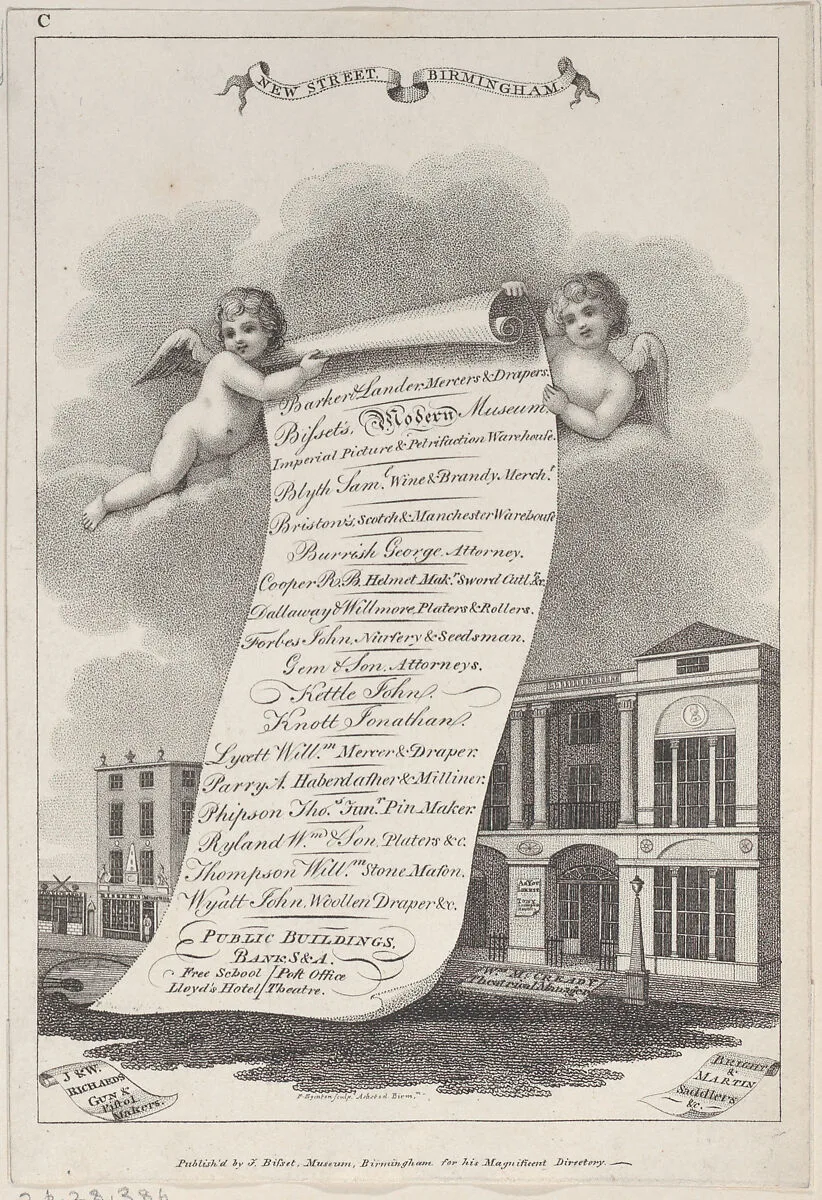 C
NEW STREET. BIRMINGHAM.
Barker & Lander, Mercers & Drapers.
Bisset's, Modern Museum.
Imperial Picture & Petrifaction Warehouse.
Blyth Sam.l Wine & Brandy Merch.t
Briston's, Scotch & Manchester Warehouse
Burrish George, Attorney.
Cooper R.B. Helmet Mak.r Sword Cutl.r &c.
Dallaway & Willmore, Platers & Rollers.
Forbes John, Nursery & Seedsman.
Gem & Son, Attorneys.
Kettle John.
Knott Jonathan.
Lycett Will.m Mercer & Draper.
Parry A. Haberdasher & Milliner.
Phipson Tho.s Jun.r Pin Maker.
Ryland W.m & Son, Platers &c.
Thompson Will.m Stone Mason.
Wyatt John, Woollen Draper &c.
PUBLIC BUILDINGS,
BANKS &A.
Free School / Post Office
Lloyd's Hotel / Theatre.
AS YOU
LIKE IT
W.m MC.CREADY
Theatrical Manager
J & W.
RICHARDS
GUN &
Pistol
Makers.
BRIGHT
&
MARTIN
Saddlers
&c.
Birm.m
Publish'd by J. Bisset, Museum, Birmingham for his Magnificent Directory.